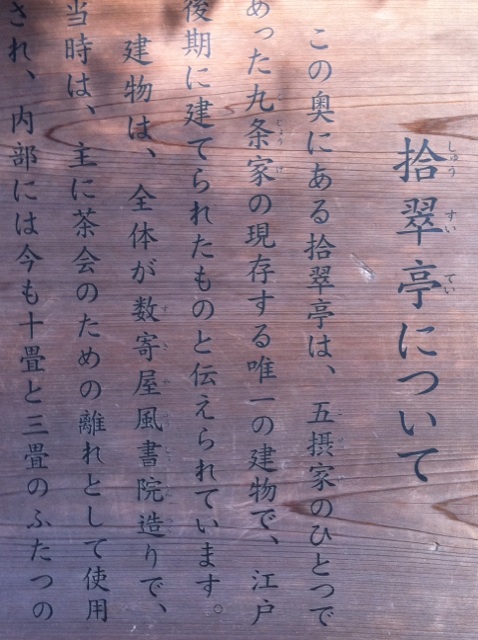 拾翠亭について
この奥にある拾翠亭は、五摂家のひとつで
あった九条家の現存する唯一の建物で、江戸
後期に建てられたものと伝えられています。
建物は、全体が数寄屋風書院造りで、
当時は、主に茶会のための離れとして使用
され、内部には今も十畳と三畳のふたつの